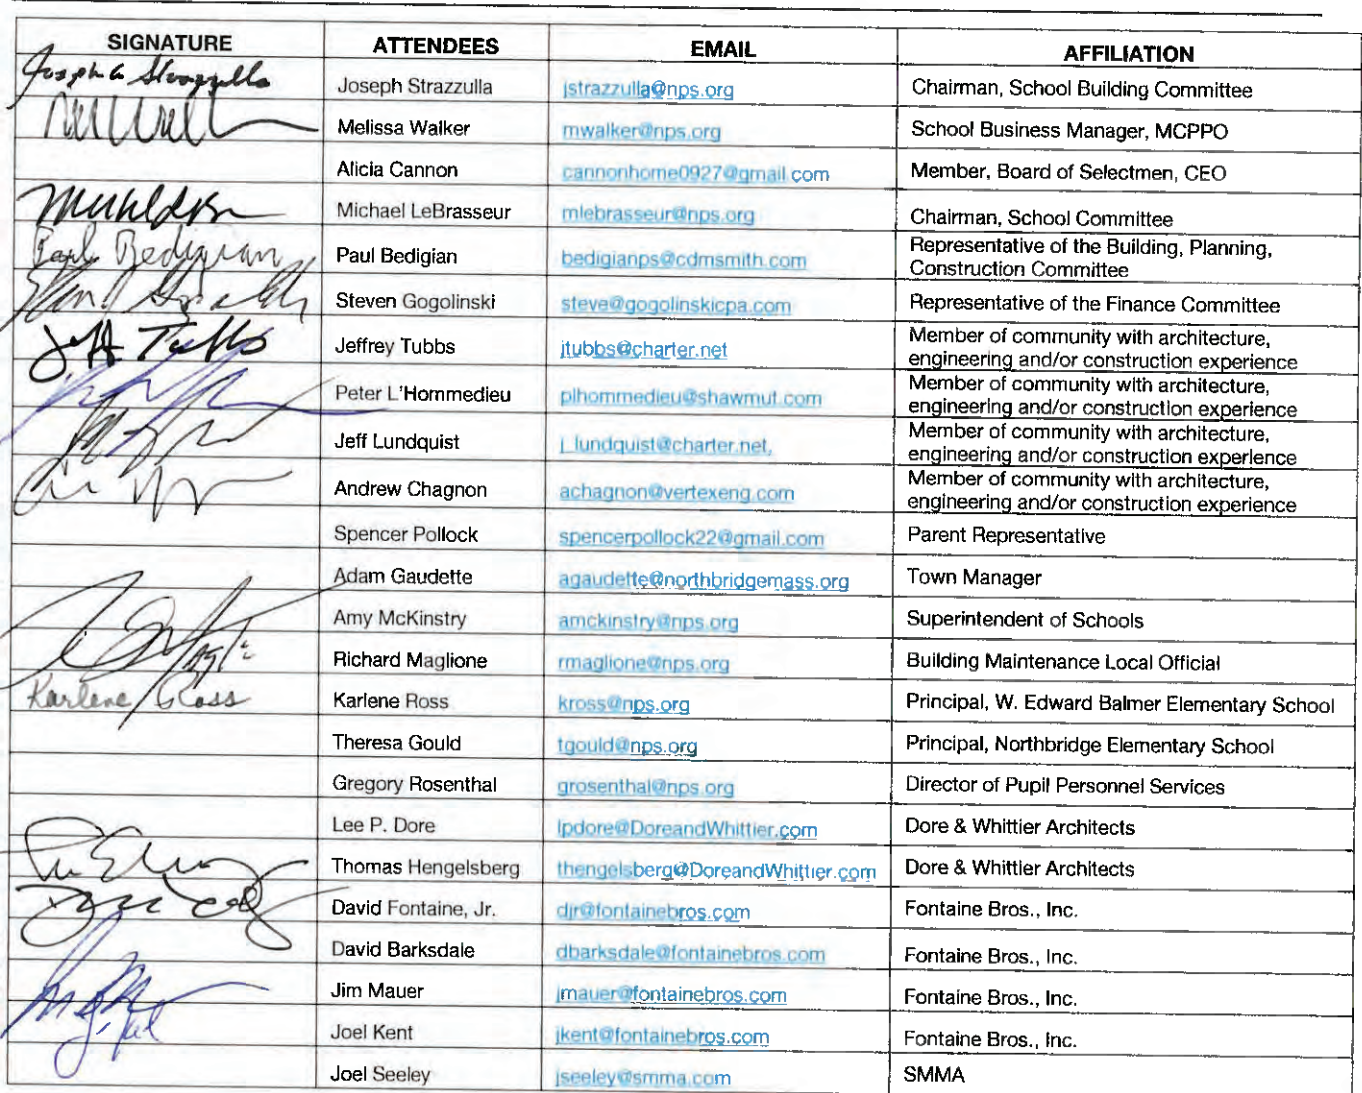 SIGNATURE ATTENDEES EMAIL AFFILIATION
Joseph Strazzulla jstrazzulla@nps.org Chairman, School Building Committee
Melissa Walker mwalker@nps.org School Business Manager, MCPPO
Alicia Cannon cannonhome0927@gmail.com Member, Board of Selectmen, CEO
Michael LeBrasseur mlebrasseur@nps.org Chairman, School Committee
Paul Bedigian Paul Bedigian bedigianps@cdmsmith.com Representative of the Building, Planning,
Construction Committee
Steven Gogolinski steve@gogolinskicpa.com Representative of the Finance Committee
Jeff Tubbs Jeffrey Tubbs jtubbs@charter.net Member of community with architecture,
engineering and/or construction experience
Peter L'Hommedieu plhommedieu@shawmut.com Member of community with architecture,
engineering and/or construction experience
Jeff Lundquist j_lundquist@charter.net, Member of community with architecture,
engineering and/or construction experience
Andrew Chagnon achagnon@vertexeng.com Member of community with architecture,
engineering and/or construction experience
Spencer Pollock spencerpollock22@gmail.com Parent Representative
Adam Gaudette agaudette@northbridgemass.org Town Manager
Amy McKinstry amckinstry@nps.org Superintendent of Schools
Richard Maglione rmaglione@nps.org Building Maintenance Local Official
Karlene Ross Karlene Ross kross@nps.org Principal, W. Edward Balmer Elementary School
Theresa Gould tgould@nps.org Principal, Northbridge Elementary School
Gregory Rosenthal grosenthal@nps.org Director of Pupil Personnel Services
Lee P. Dore lpdore@DoreandWhittier.com Dore & Whittier Architects
Thomas Hengelsberg thengelsberg@DoreandWhittier.com Dore & Whittier Architects
David Fontaine, Jr. djr@fontainebros.com Fontaine Bros., Inc.
David Barksdale dbarksdale@fontainebros.com Fontaine Bros., Inc.
Jim Mauer jmauer@fontainebros.com Fontaine Bros., Inc.
Joel Kent jkent@fontainebros.com Fontaine Bros., Inc.
Joel Seeley jseeley@smma.com SMMA